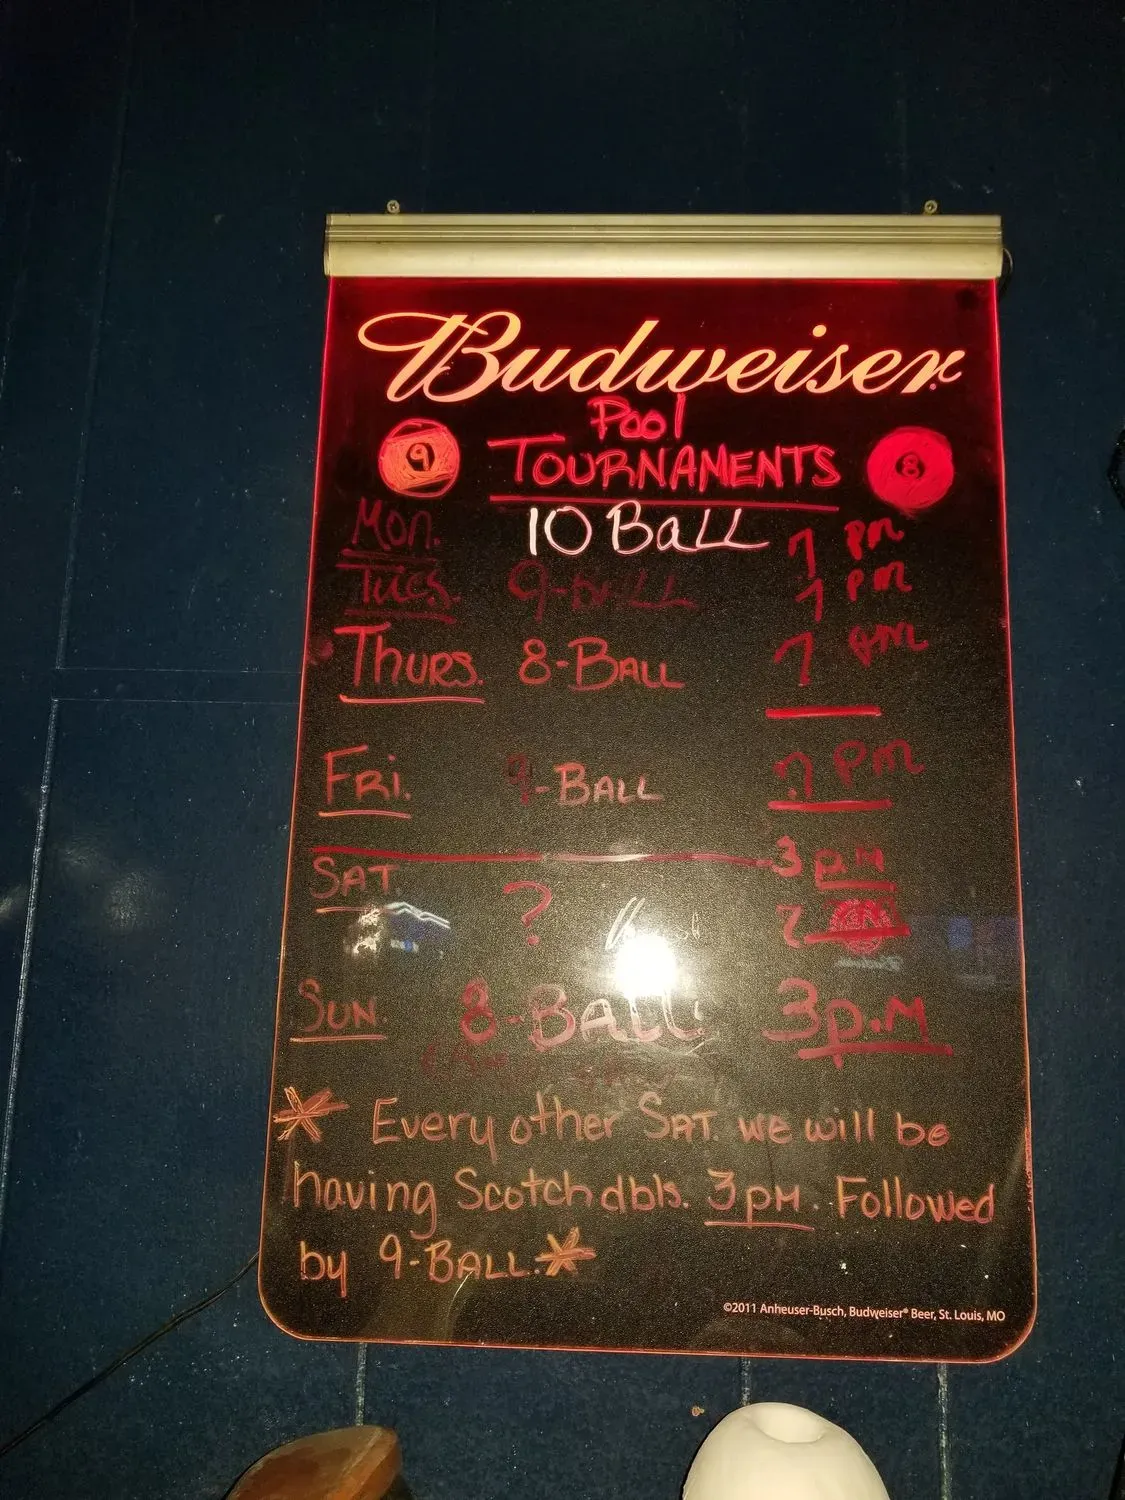 Budweiser
Pool
9 TOURNAMENTS 8
Mon. 10 BALL 7 PM
Tues. 9-BALL 7 PM
THURS. 8-BALL 7 PM
FRI. 9-BALL 7 PM
SAT. ? 3 PM
?
SUN. 8-BALL 3 P.M
* Every other SAT. we will be
having Scotch dbls. 3 PM. Followed
by 9-BALL. *
©2011 Anheuser-Busch, Budweiser® Beer, St. Louis, MO